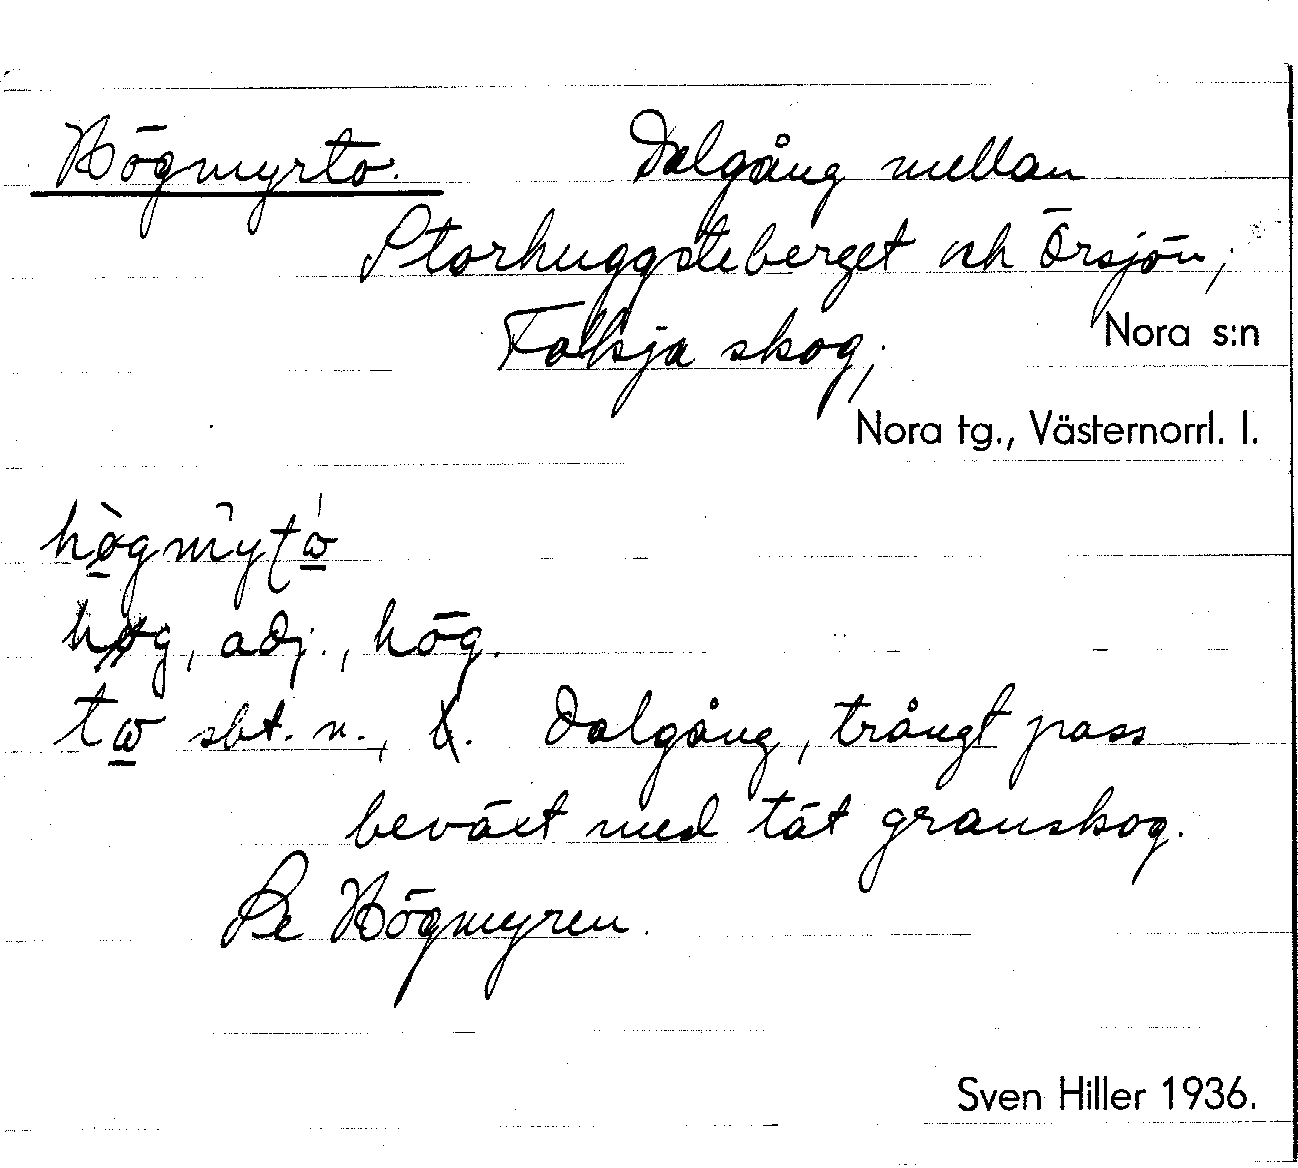 Högmyrto. Dalgång mellan
Storhuggsteberget och Örsjön;
Falksja skog;
Nora s:n
Nora tg., Västernorrl. l.
høgmyʈɷ
høg, adj., hög.
tɷ sbt. n., Dalgång, trångt pass
beväxt med tät granskog.
Se Högmyren.
Sven Hiller 1936.